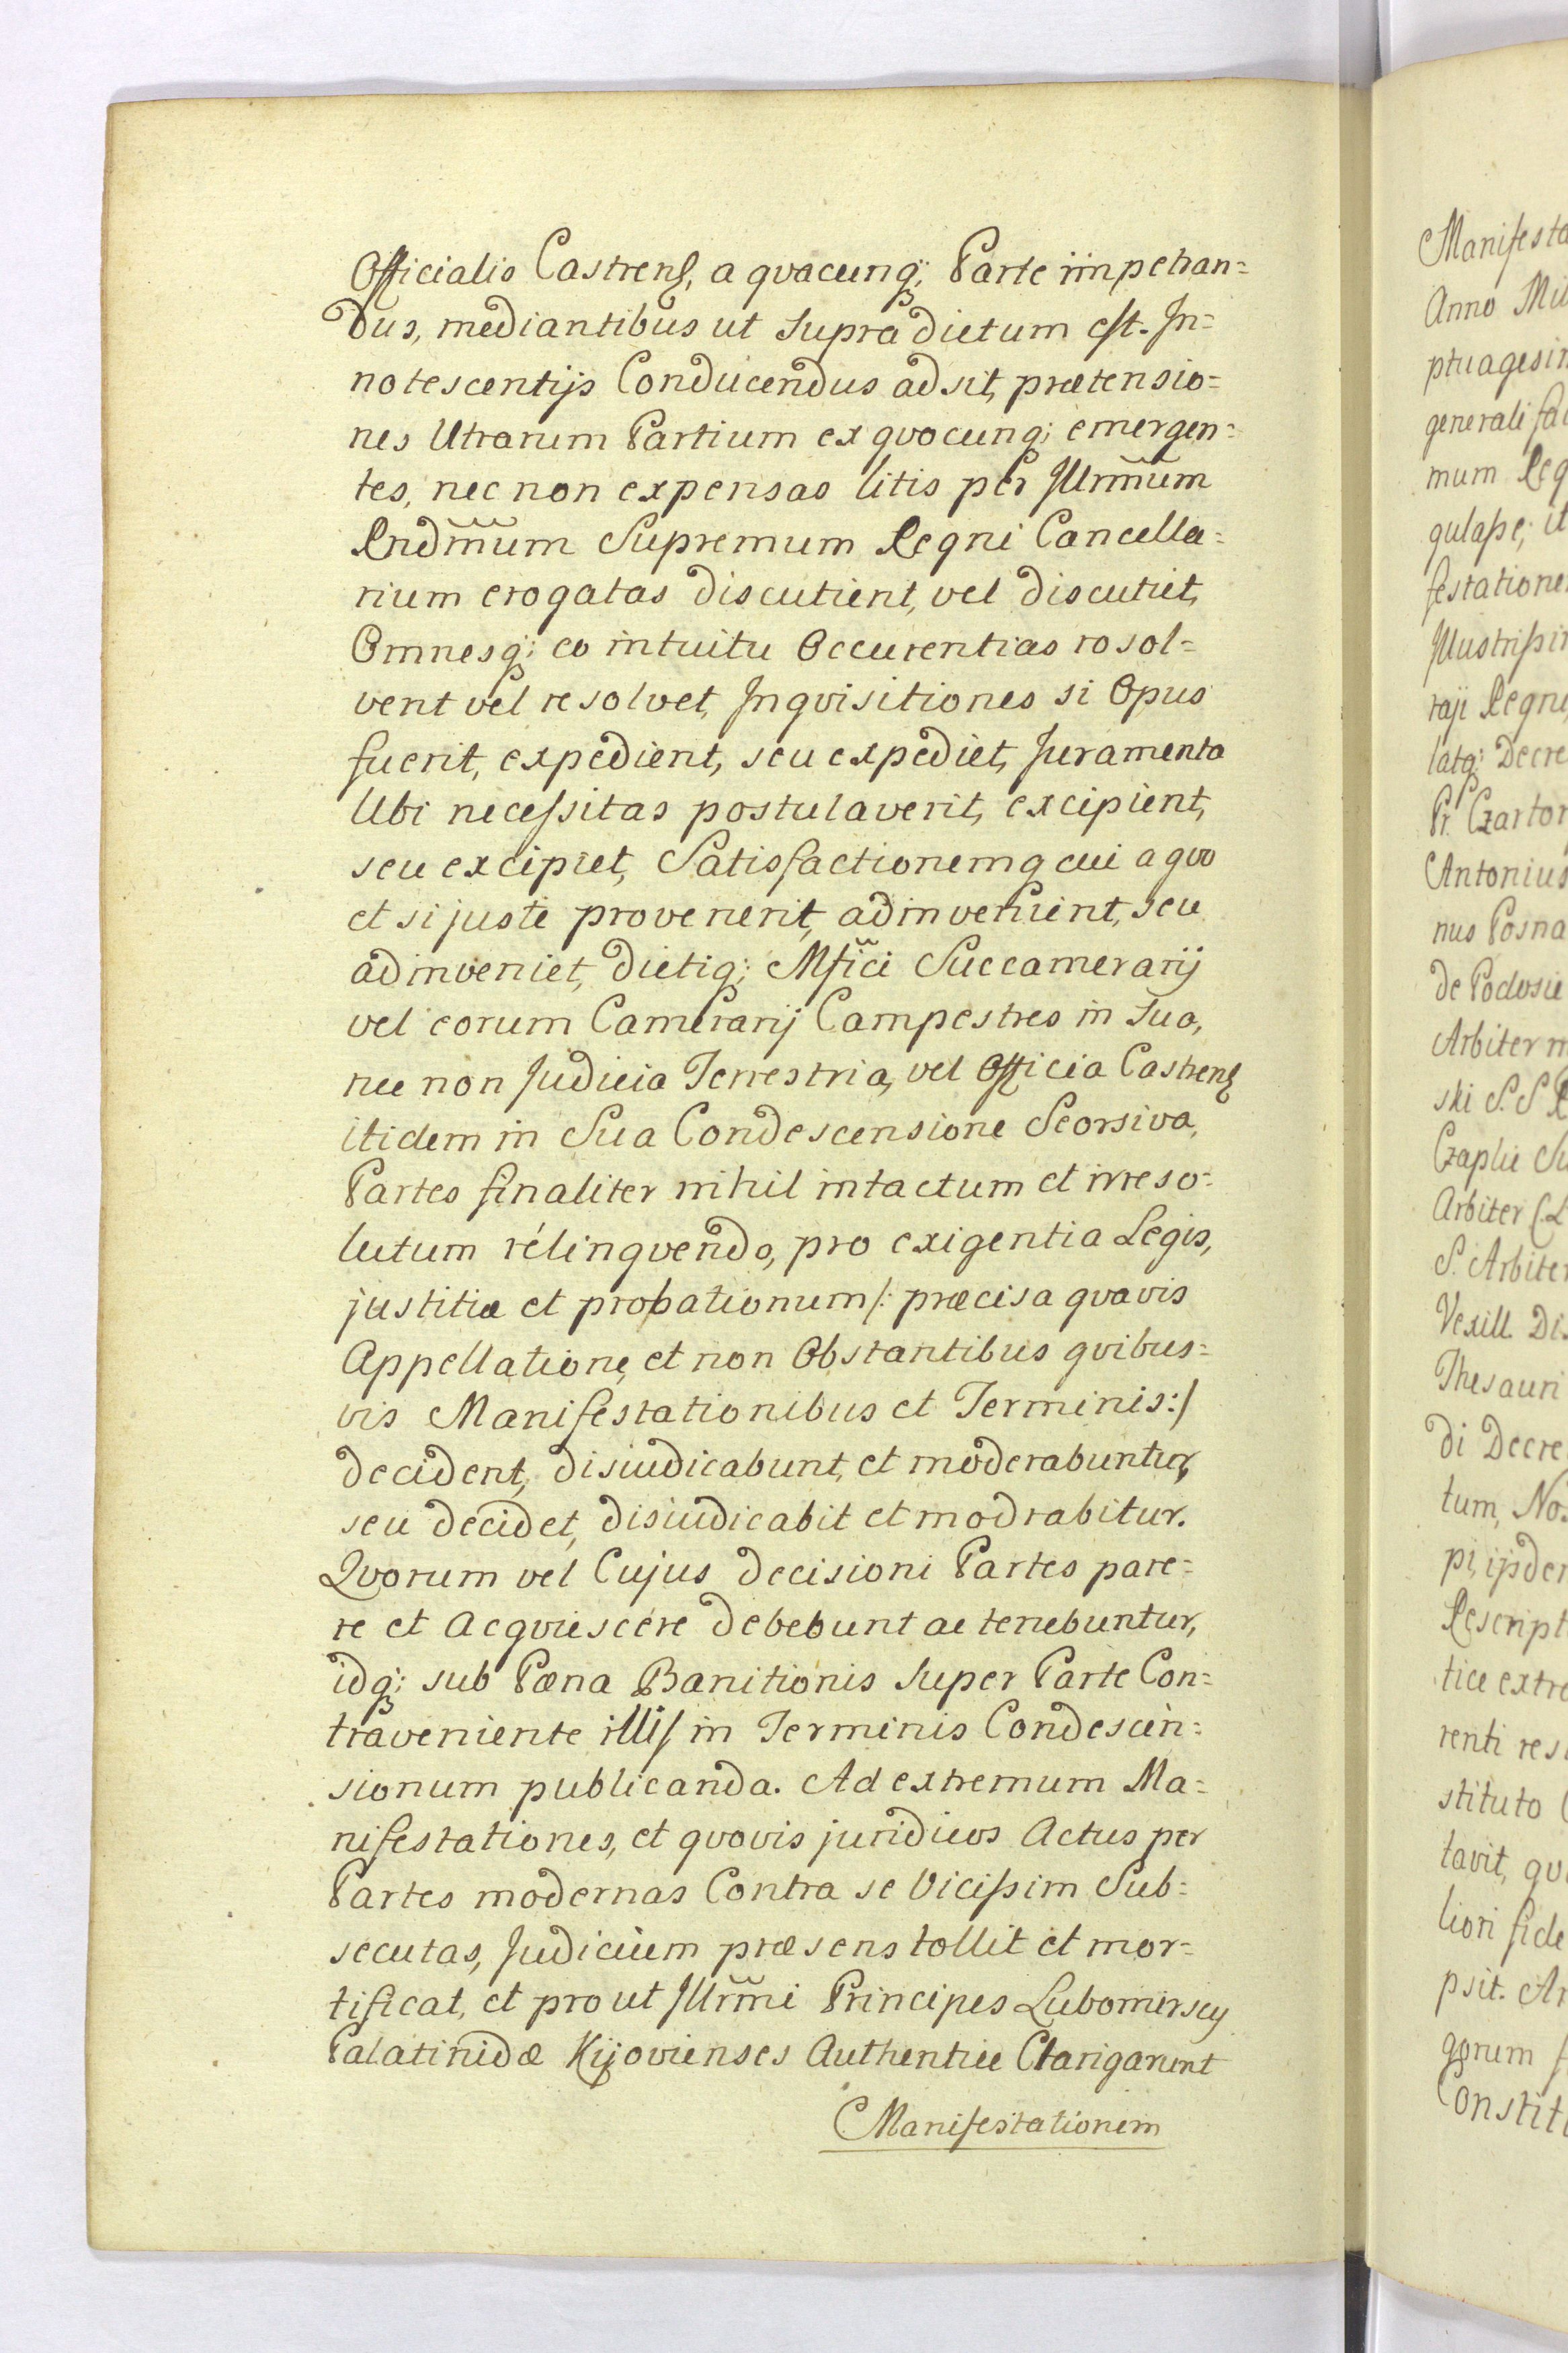 Officialis Castrens, a qvacunq; Parte impetran=
dus, mediantibus ut supra dictum est. In=
notescentijs Conducendus adsit, prætensio=
nes Utrarum Partium ex qvocunq; emergen=
tes, nec non expensas litis per Jllrm̃um
Rndm̃um Supremum Regni Cancella=
rium erogatas discutient, vel discutiet,
Omnesq; eo intuitu Occurentias resol=
vent vel resolvet, Inqvisitiones si Opus
fuerit, expedient, seu expediet, Juramenta
Ubi necessitas postulaverit, excipient,
seu excipiet, Satisfactionemq cui a qvo
et si juste provenerit, adinvenient, seu
adinveniet, dictiq; Mfici Succamerarij
vel eorum Camerarij Campestres in sua,
nec non Judicia Terrestria, vel Officia Castrens
itidem in Sua Condescensione Seorsiva,
Partes finaliter nihil intactum et irreso=
lutum relinqvendo, pro exigentia Legis,
justitiæ et probationum /: præcisa qvavis
Appellatione, et non Obstantibus qvibus=
vis Manifestationibus et Terminis :/
decident, disiudicabunt, et moderabuntur,
seu decidet, disiudicabit et modrabitur.
Qvorum vel Cujus decisioni Partes pare=
re et Acqviescere debebunt ac tenebuntur,
idq; sub Pœna Banitionis super Parte Con=
traveniente illis in Terminis Condescen=
sionum publicanda. Ad extremum Ma=
nifestationes, et qvovis juridicos Actus per
Partes modernas Contra se Vicissim Sub=
secutas, Judicium præsens tollit et mor=
tificat, et prout Jllrm̃i Principes Lubomirscy
Palatinidæ Kijovienses Authentice Clarigarunt
Manifestationem
Manifesta
Anno Mil
ptuagesim
generali
mum Reg
gulasse; it
festatione
Jllustrissi
raji Regni
latq; Decre
Pr. Czartor
Antonius
nus Posna
de Podosie
Arbiter
ski S. S
Czaplic Su
Arbiter
S. Arbiter
Vexill. Dis
Thesauri
di Decre
tum, No
pi, ijsdem
Rescript
tice extra
renti res
stituto
tavit, qv
liori fide
psit. Ar
gorum
Constit